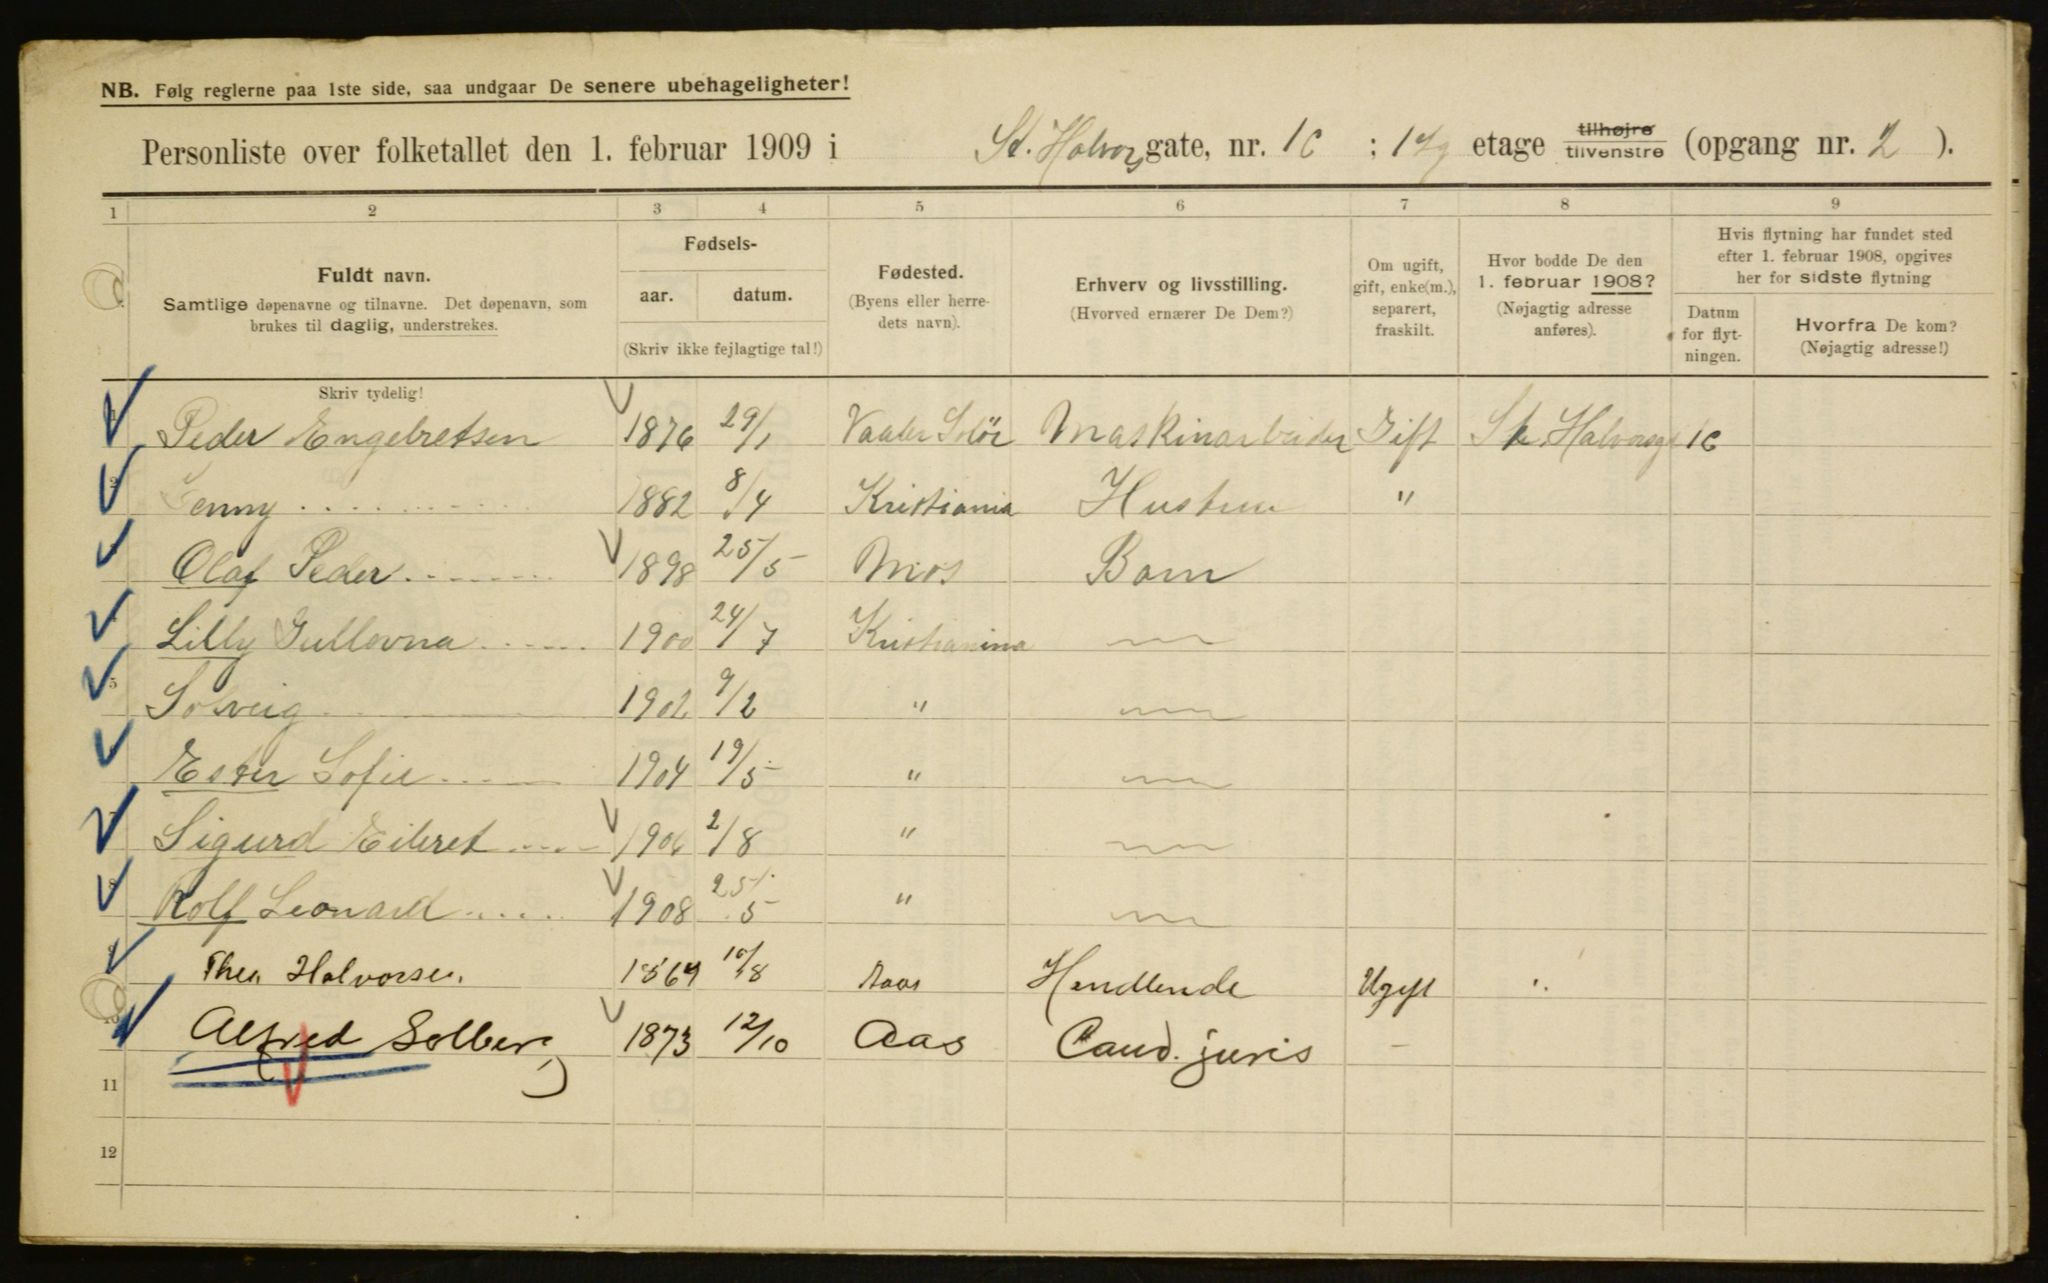 NB. Følg reglerne paa 1ste side, saa undgaar De senere ubehageligheter!
Personliste over folketallet den 1. februar 1909 i St. Halvors gate, nr. 1C ; 1 etg etage tilhøjre tilvenstre (opgang nr. 2 ).
1 2 3 4 5 6 7 8 9
Fuldt navn.
Samtlige døpenavne og tilnavne. Det døpenavn, som
brukes til daglig, understrekes.
Fødsels-
aar. datum.
(Skriv ikke fejlagtige tal!)
Fødested.
(Byens eller herre-
dets navn).
Erhverv og livsstilling.
(Hvorved ernærer De Dem?)
Om ugift,
gift, enke(m.),
separert,
fraskilt.
Hvor bodde De den
1. februar 1908?
(Nøjagtig adresse
anføres).
Hvis flytning har fundet sted
efter 1. februar 1908, opgives
her for sidste flytning
Datum
for flyt-
ningen.
Hvorfra De kom?
(Nøjagtig adresse!)
Skriv tydelig!
1 Peder Engebretsen 1876 29/1 Vaaler Solør Maskinarbeider Gift St Halvorsgt 1C
2 Jenny 1882 8/4 Kristiania Hustru "
Olaf Peder 1898 25/5 Mos Barn
Lilly Gullovna 1900 24/7 Kristianina
5 Solveig 1902 9/2 "
Ester Sofie 1904 19/5 "
Sigurd Eileret 1906 2/8 "
8 Rolf Leonard 1908 25/5 "
9 Thea Halvorsen 1864 10/8 Hendlende Ugift "
10 Alfred Solberg 1873 12/10 Aas Cand. juris -
11
12